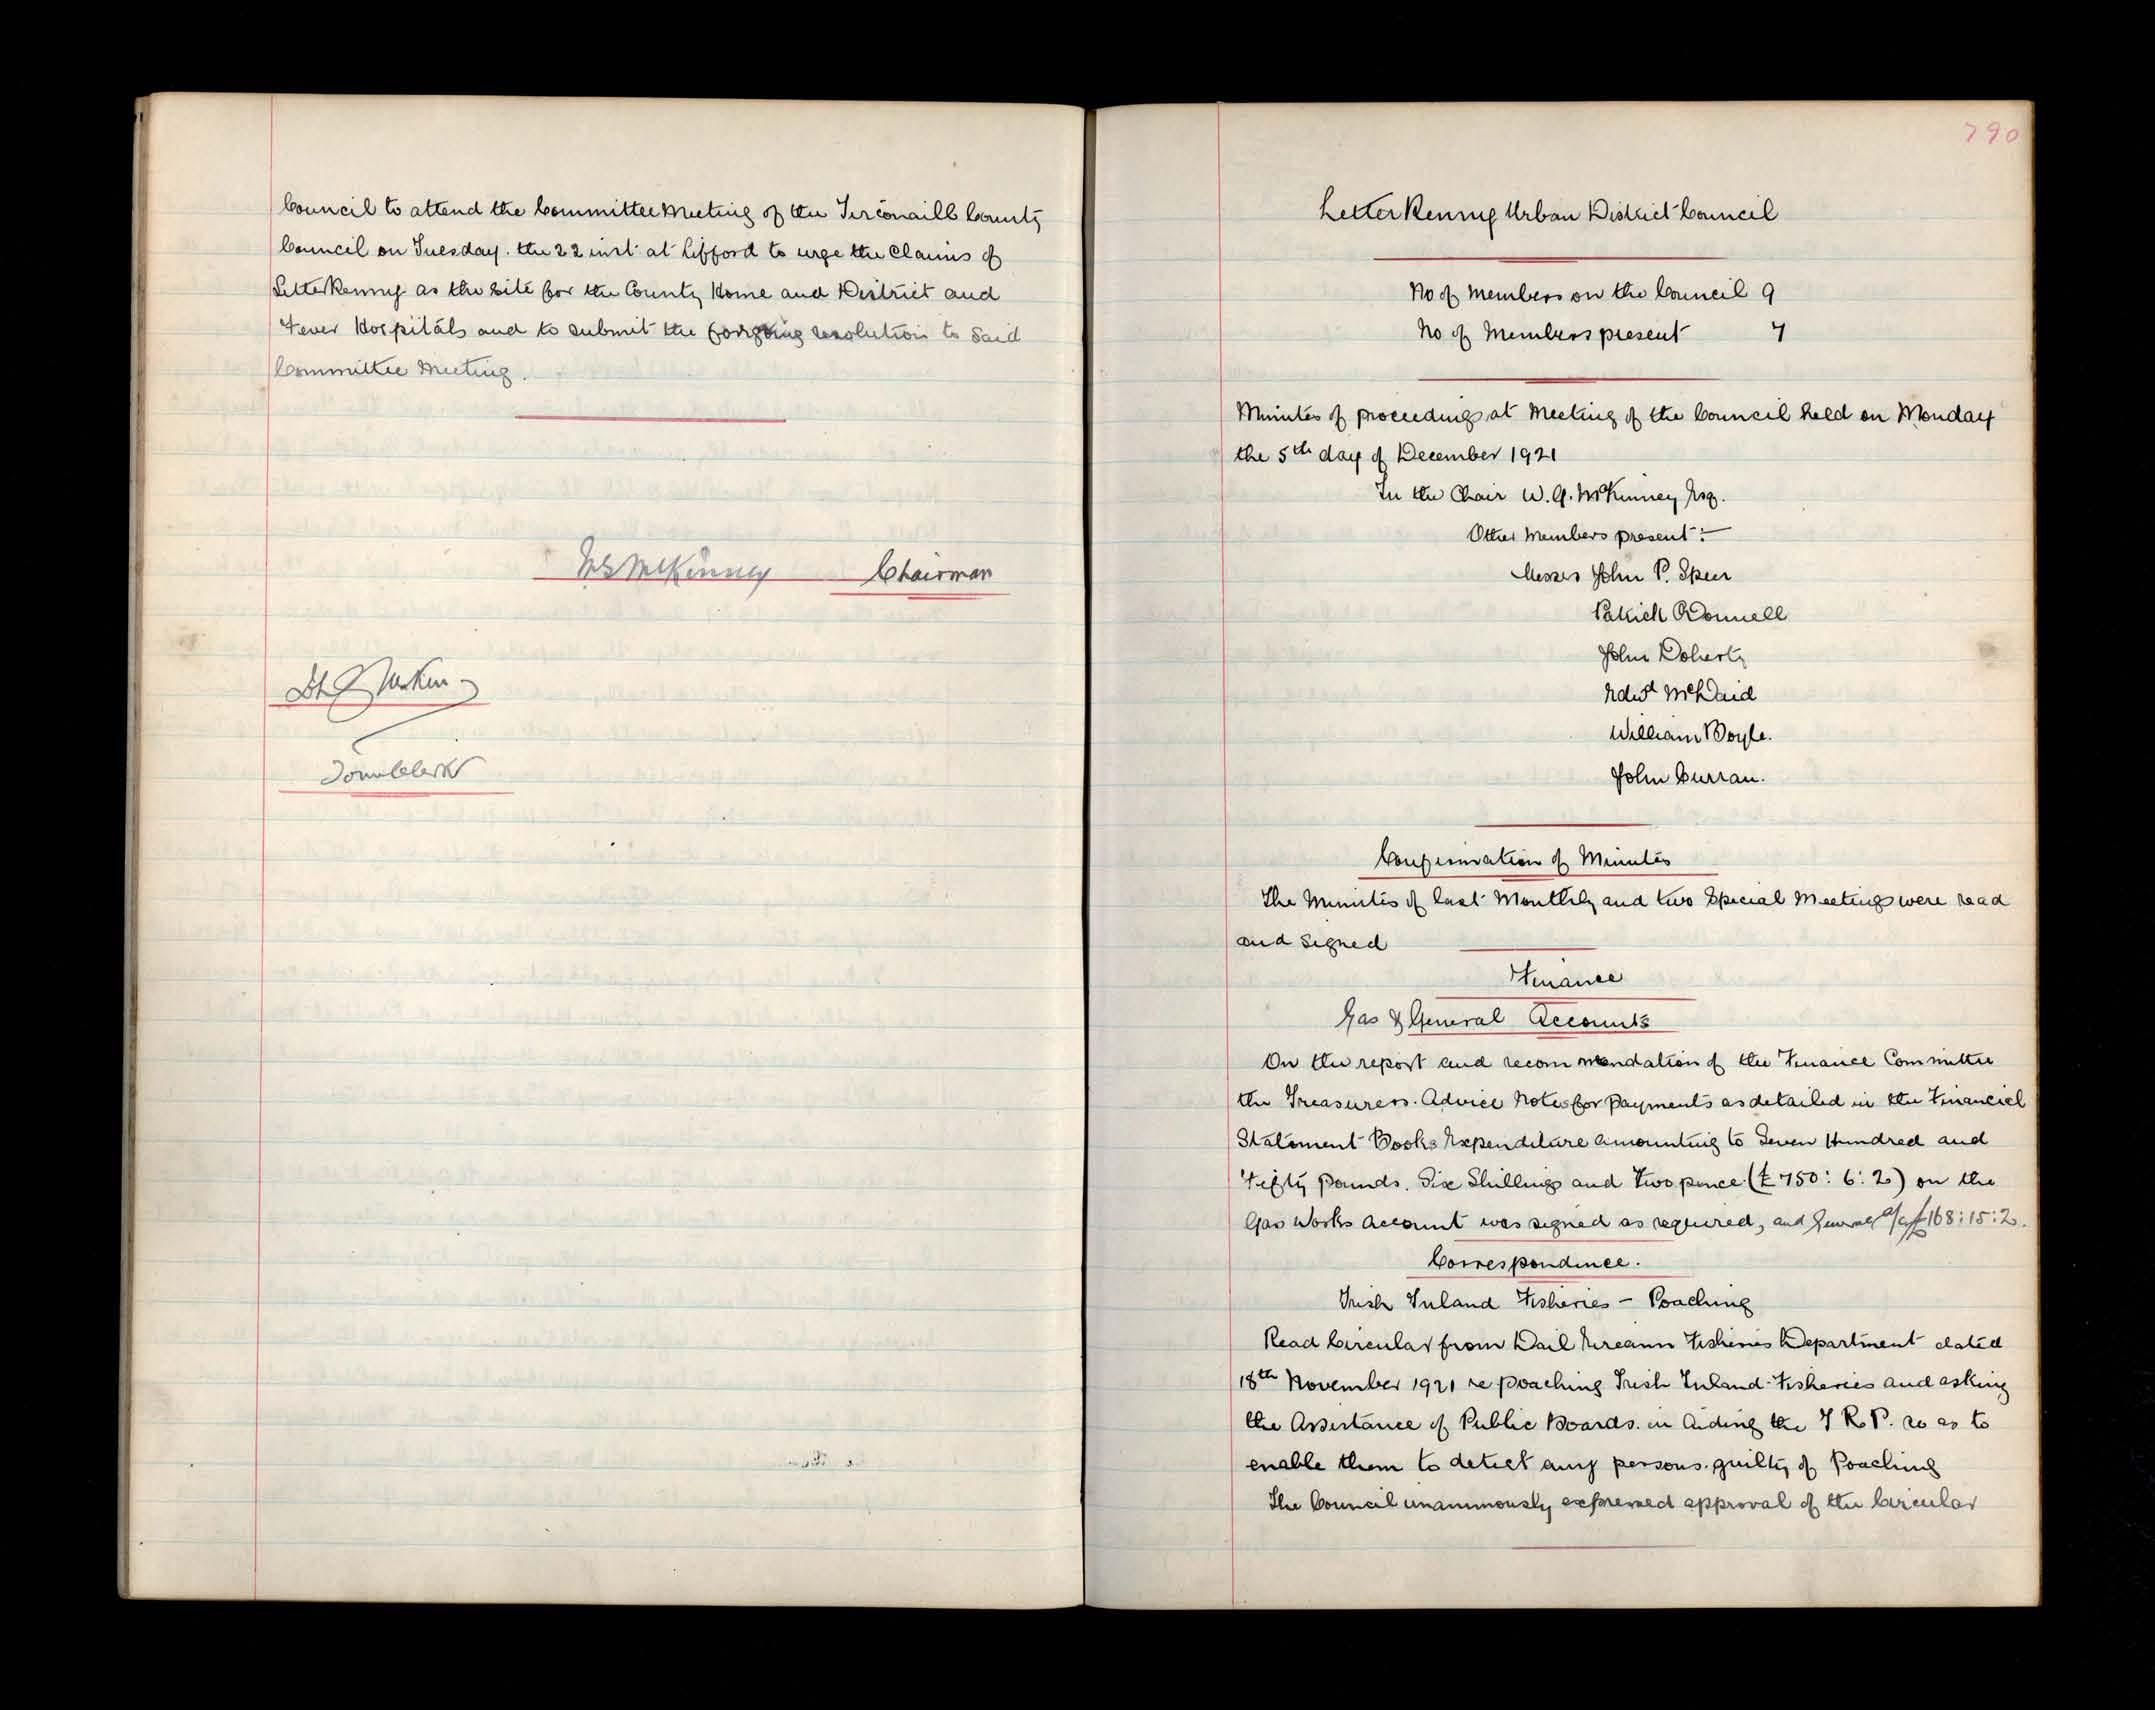 Council to attend the Committee Meeting of the Tirconaill County
Council on Tuesday. the 22 inst at Lifford to urge the Claims of
Letterkenny as the Site for the County Home and District and
Fever Hospitals and to submit the foregoing resolution to said
Committee Meeting.
McKinney Chairman
Town Clerk
790
Letterkenny Urban District Council
No of Members on the Council 9
No of Members present 7
Minutes of proceedings at Meeting of the Council held on Monday
the 5th day of December 1921
In the Chair W. G. McKinney Esq.
Other Members present:-
Messrs John P. Speer
Patrick O'Donnell
John Doherty
Edwd McDaid
William Boyle.
John Curran.
Confirmation of Minutes
The Minutes of last Monthly and two Special Meetings were read
and signed
Finance
Gas & General Accounts
On the report and recommendation of the Finance Committee
the Treasurers. Advice Notes for payments as detailed in the Financial
Statement Books Expenditure amounting to Seven Hundred and
Fifty Pounds. Six Shillings and Two pence (£750: 6: 2) on the
Gas Works Account was signed as required, and General a/c £168:15:2.
Correspondence.
Irish Inland Fisheries - Poaching
Read Circular from Dail Eireann Fisheries Department dated
18th November 1921 re poaching Irish Inland Fisheries and asking
the Assistance of Public Boards. in Aiding the I R P. so as to
enable them to detect any persons guilty of Poaching
The Council unanimously expressed approval of the Circular